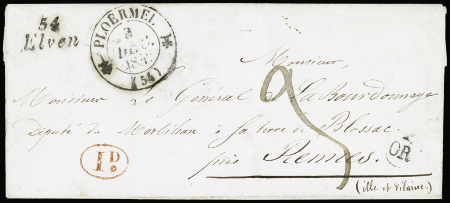 54
Elven
PLOERMEL
3
DEC.
(54)
Monsieur,
Monsieur Le Général De La Bourdonnaye
Député du Morbihan à sa terre de Blossac
près Rennes.
(ille et Vilaine)
1D
OR